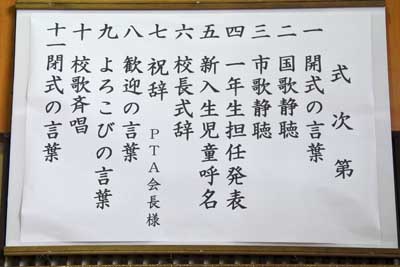 式次第
一 開式の言葉
二 国歌静聴
三 市歌静聴
四 一年生担任発表
五 新入生児童呼名
六 校長式辞
七 祝辞 PTA会長様
八 歓迎の言葉
九 よろこびの言葉
十 校歌斉唱
十一 閉式の言葉